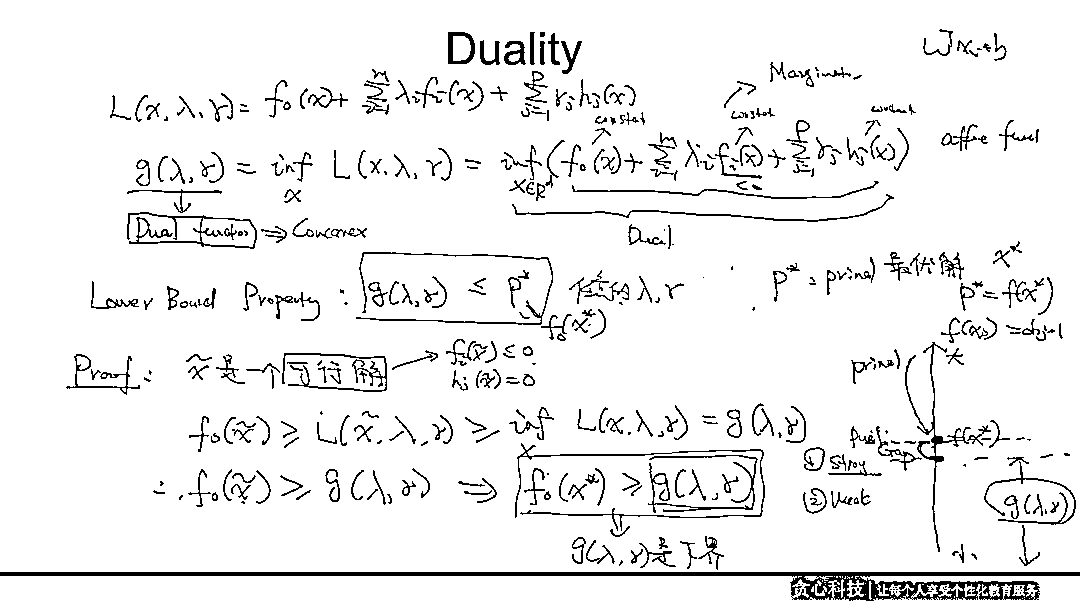 Duality
wᵀx+b
L(x,λ,γ) = f₀(x) + Σᵢ₌₁ᵐ λᵢfᵢ(x) + Σⱼ₌₁ᵖ γⱼhⱼ(x)
constat constat
g(λ,γ) = inf L(x,λ,γ) = inf (f₀(x) + Σᵢ₌₁ᵐ λᵢfᵢ(x) + Σⱼ₌₁ᵖ γⱼhⱼ(x))
x x∈Rᵈ ≤0
Dual function ⇒ Concave
Dual
Lower Bound Property : g(λ,γ) ≤ p* 任意的 λ,γ
f₀(x*)
p* = primal 最优解 x*
p* = f(x*)
Proof : x̃ 是一个 可行解 → fᵢ(x̃) ≤ 0
hⱼ(x̃) = 0
f₀(x̃) ≥ L(x̃,λ,γ) ≥ inf L(x,λ,γ) = g(λ,γ)
x
∴ f₀(x̃) ≥ g(λ,γ) ⇒ f₀(x*) ≥ g(λ,γ)
g(λ,γ)是下界
primal
f(x*)
Gap
① Strong
② Weak
g(λ,γ)
贪心科技 | 让每个人享受个性化教育服务